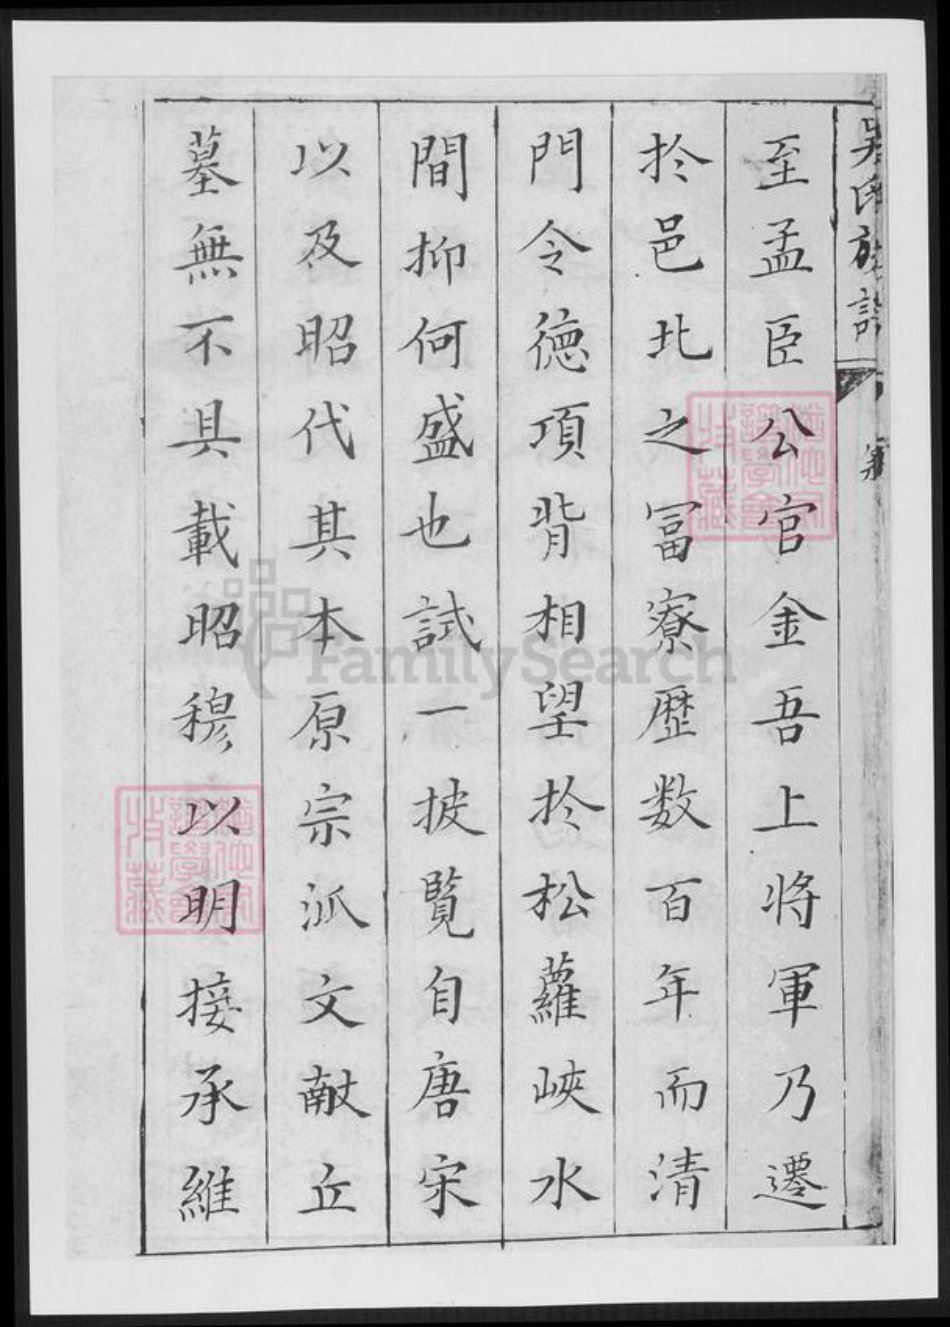 吳氏族譜
至孟臣公官金吾上將軍乃遷
於邑北之冨寮歷数百年而清
門令德項背相望於松蘿峽水
間抑何盛也試一披覧自唐宋
以及昭代其本原宗派文献丘
墓無不具載昭穆以明接承維
FamilySearch